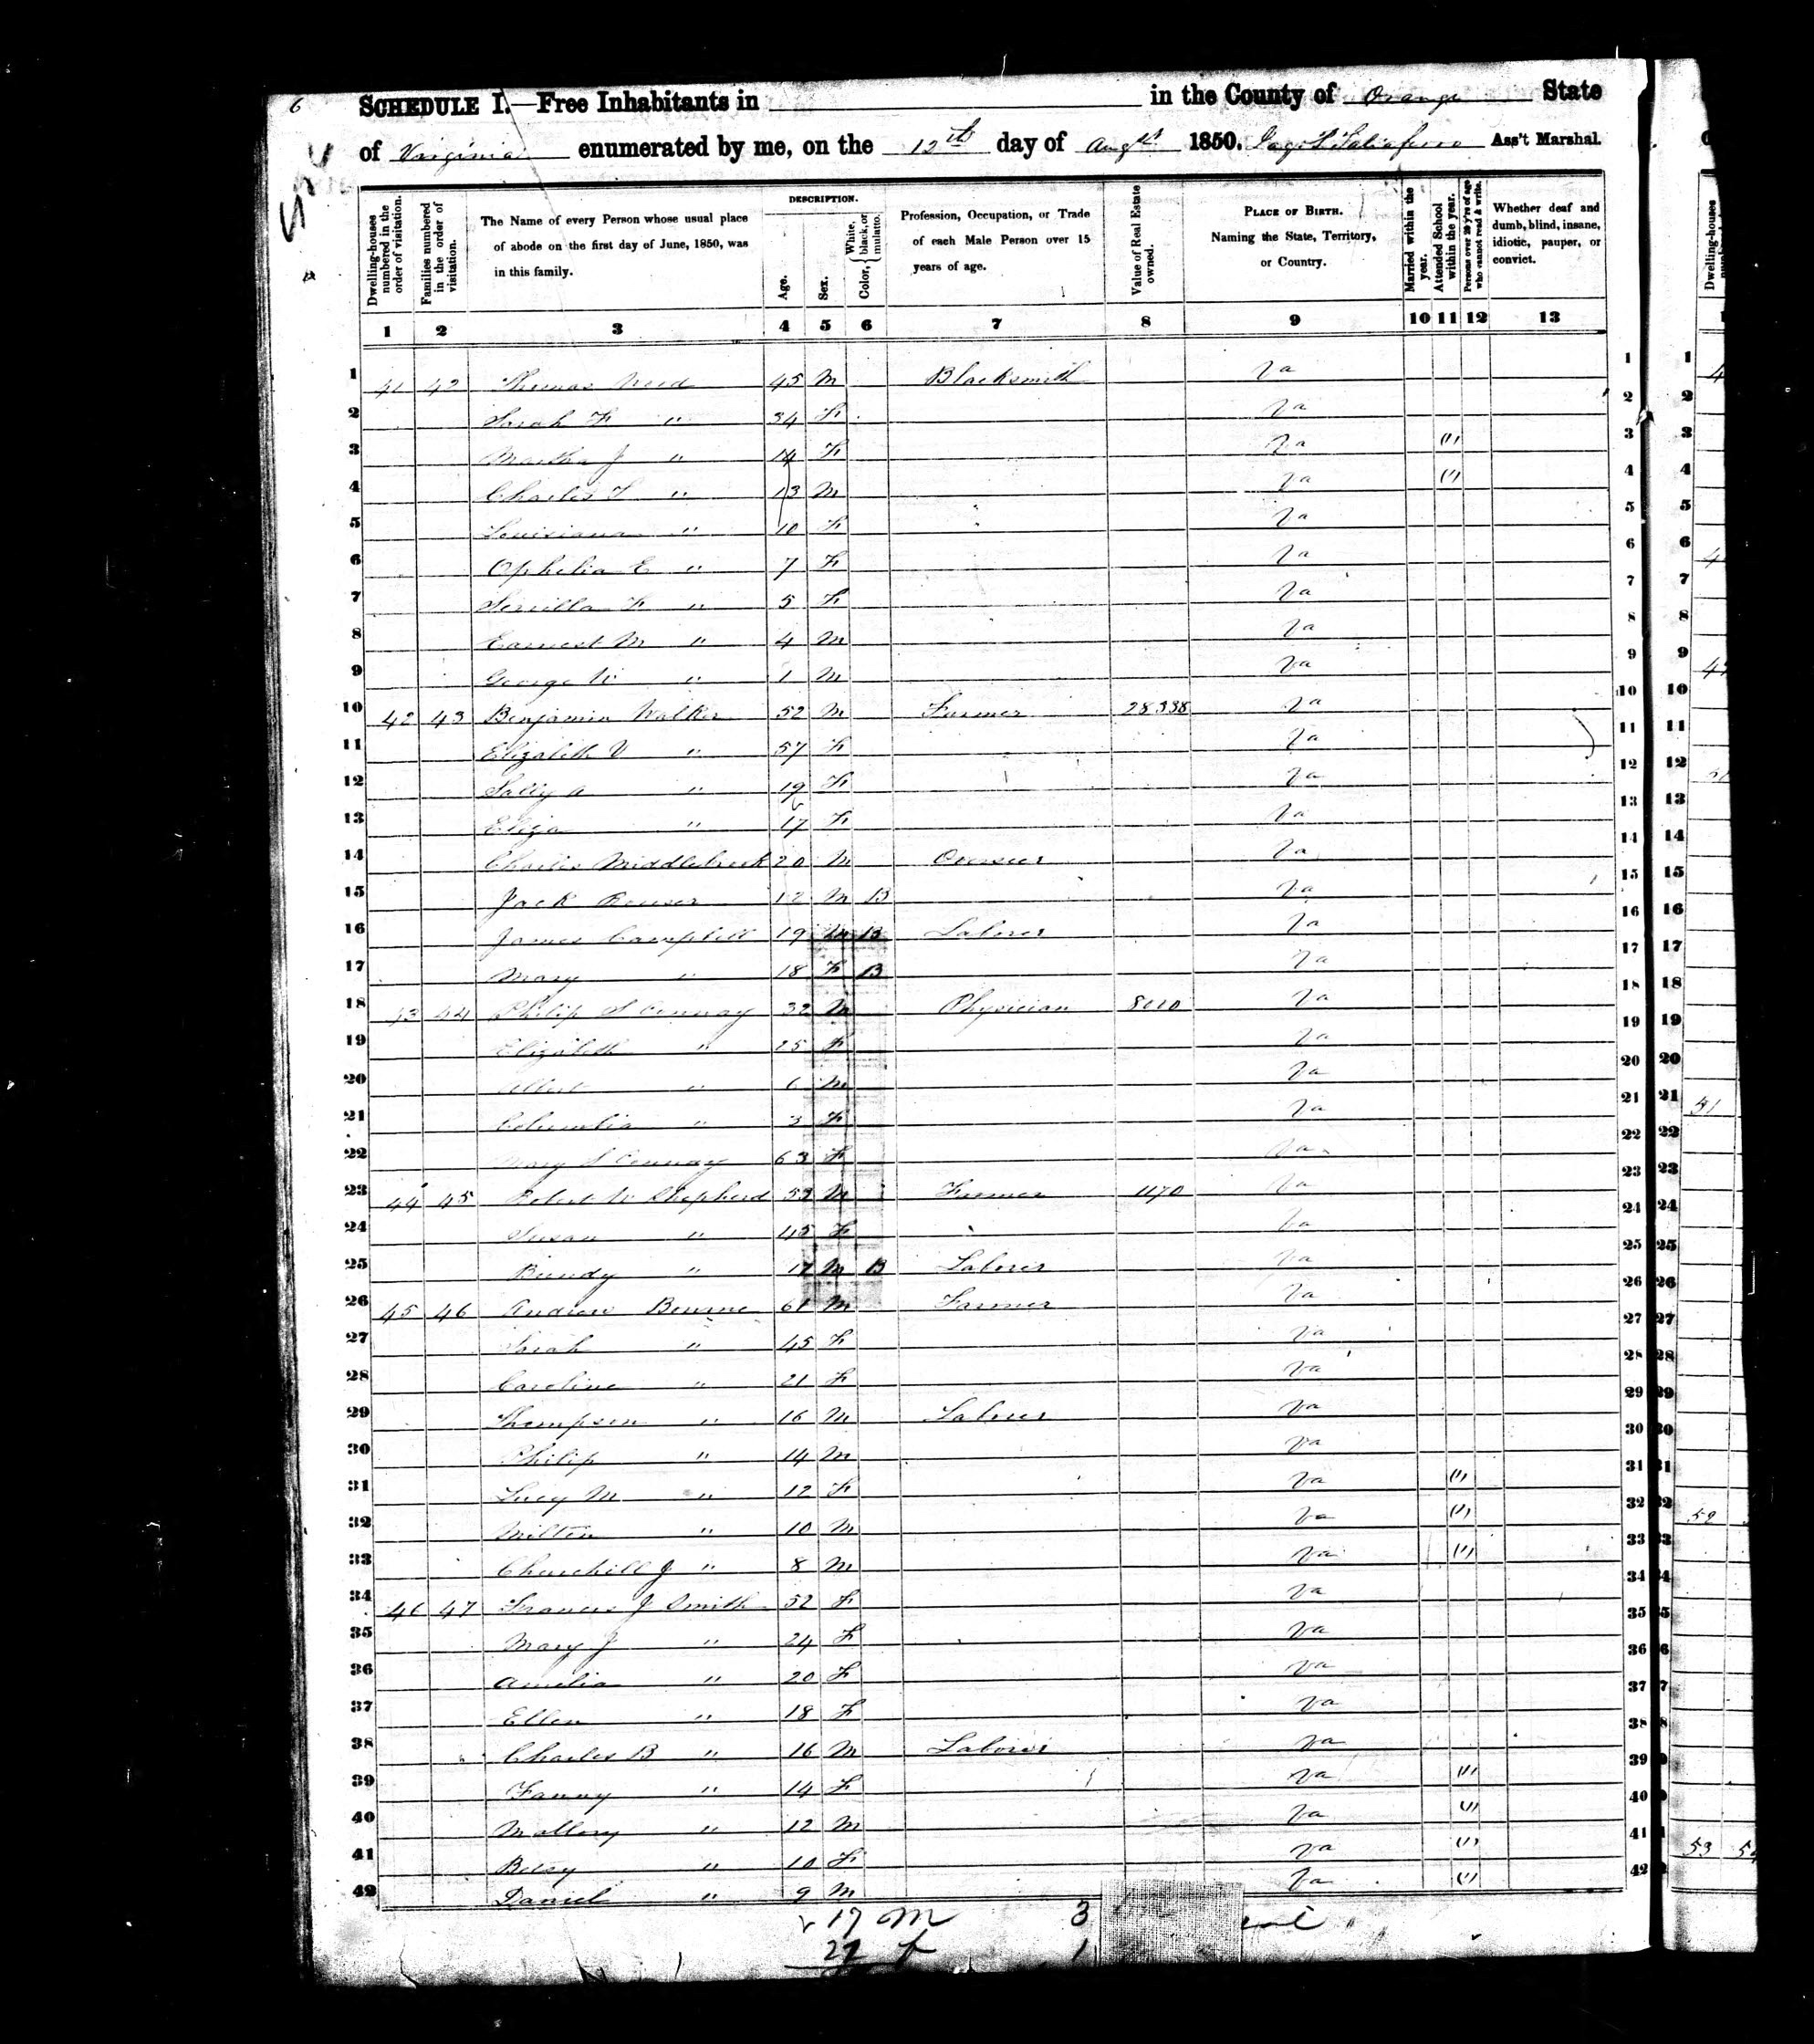 6
SCHEDULE I.—Free Inhabitants in in the County of Orange State
of Virginia enumerated by me, on the 12th day of Augst 1850. Taliaferro Ass't Marshal.
Dwelling-houses numbered in the order of visitation.
Families numbered in the order of visitation.
The Name of every Person whose usual place of abode on the first day of June, 1850, was in this family.
DESCRIPTION.
Age.
Sex.
Color, { White, black, or mulatto.
Profession, Occupation, or Trade of each Male Person over 15 years of age.
Value of Real Estate owned.
PLACE OF BIRTH. Naming the State, Territory, or Country.
Married within the year.
Attended School within the year.
Persons over 20 y'rs of age who cannot read & write.
Whether deaf and dumb, blind, insane, idiotic, pauper, or convict.
1 2 3 4 5 6 7 8 9 10 11 12 13
1 41 42 Thomas 45 M Blacksmith Va 1
2 Sarah F " 34 F Va 2
3 Martha J " 14 F Va (1) 3
4 Charles " 13 M Va (1) 4
5 Louisiana " 10 F Va 5
6 Ophelia E " 7 F Va 6
7 F " 5 F Va 7
8 Earnest M " 4 M Va 8
9 George W " 1 M Va 9
10 42 43 Benjamin Walker 52 M Farmer 28338 Va 10
11 Elizabeth V " 57 F Va 11
12 Sally A " 19 F Va 12
13 Eliza " 17 F Va 13
14 Charles Middlebrook 20 M Overseer Va 14
15 Jack 12 M B Va 15
16 James Campbell 19 M B Laborer Va 16
17 Mary " 18 F B Va 17
18 43 44 Philip S Conway 32 M Physician Va 18
19 Elizabeth " 25 F Va 19
20 Albert " 6 M Va 20
21 Columbia " 3 F Va 21
22 Mary S Conway 63 F Va 22
23 44 45 Robert W Shepherd 53 M Farmer 1170 Va 23
24 Susan " 45 F Va 24
25 Bundy " 17 M B Laborer Va 25
26 45 46 Andrew Bourne 61 M Farmer Va 26
27 Sarah " 45 F Va 27
28 Caroline " 21 F Va 28
29 Thompson " 16 M Laborer Va 29
30 Philip " 14 M Va 30
31 Lucy M " 12 F Va (1) 31
32 Milton " 10 M Va (1) 32
33 Churchill J " 8 M Va (1) 33
34 46 47 Frances J Smith 52 F Va 34
35 Mary J " 24 F Va 35
36 Amelia " 20 F Va 36
37 Ellen " 18 F Va 37
38 Charles B " 16 M Laborer Va 38
39 Fanny " 14 F Va (1) 39
40 Mallory " 12 M Va (1) 40
41 Betsy " 10 F Va (1) 41
42 Daniel " 9 M Va (1) 42
17 M 3
1